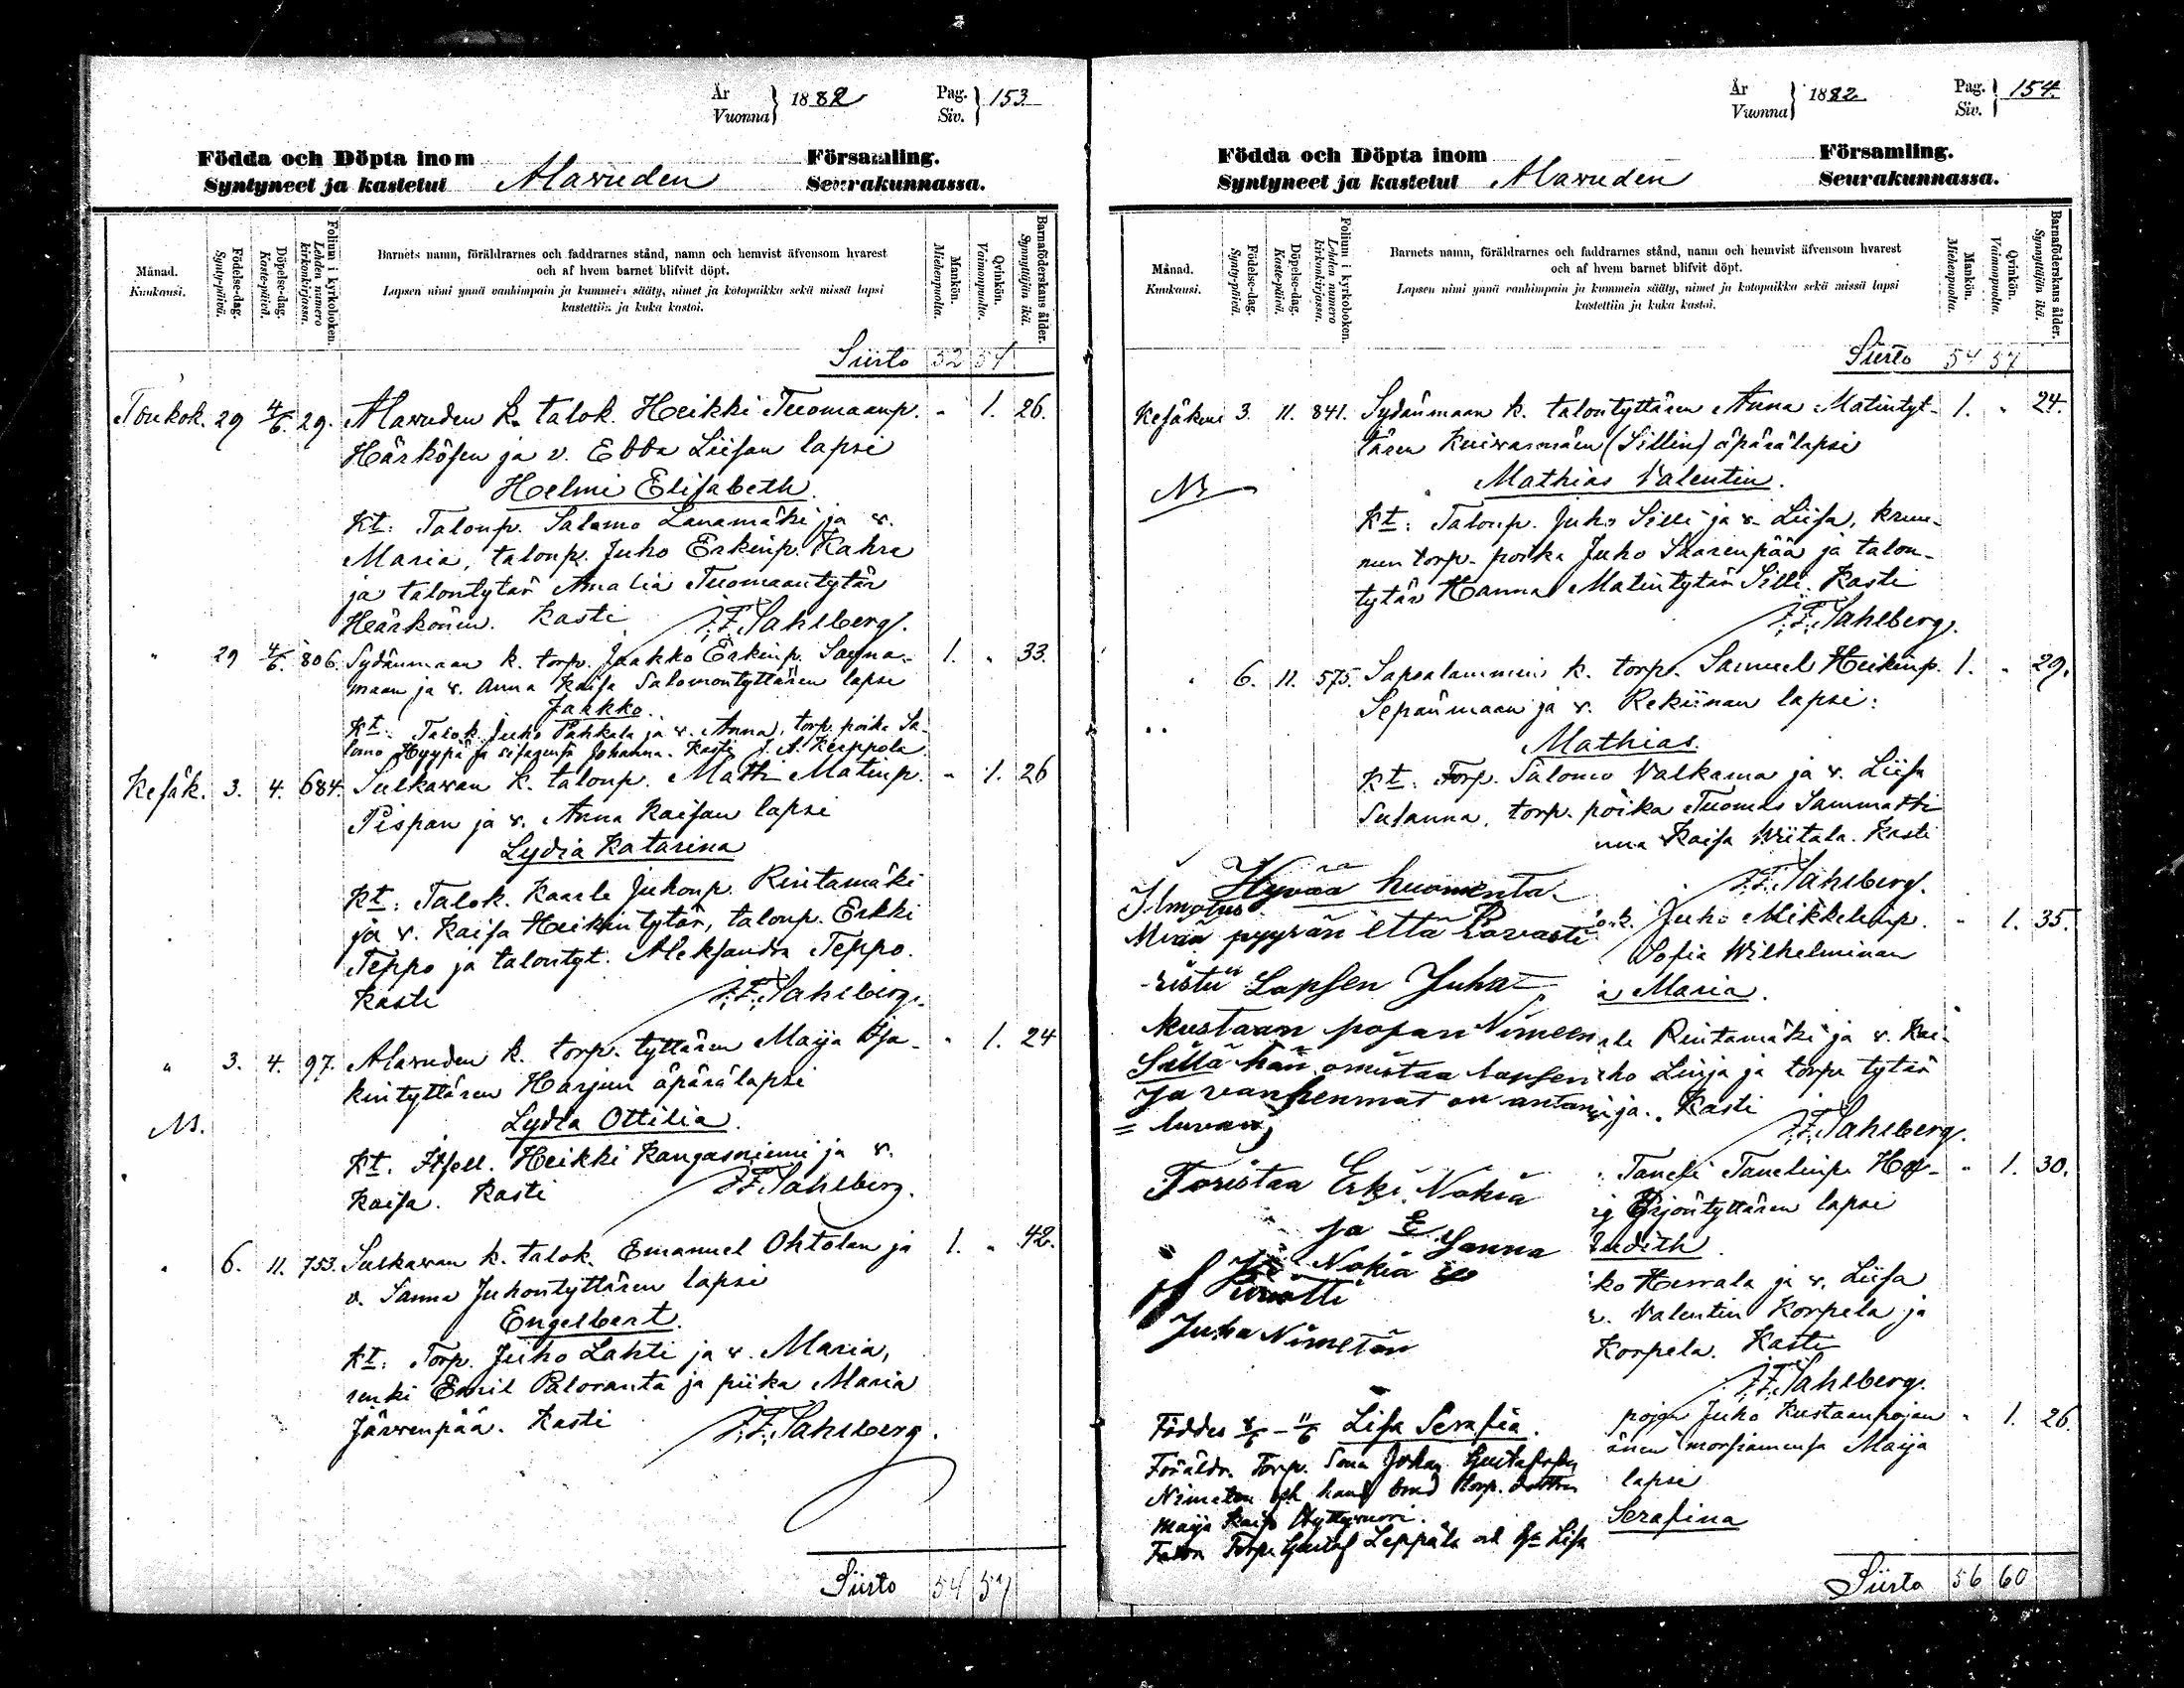 År
Vuonna
1882
Pag.
Siv.
153
Födda och Döpta inom Församling.
Syntyneet ja kastetut Alavuden Seurakunnassa.
Månad.
Kuukausi.
Födelse-dag.
Syntypäivä.
Döpelse-dag.
Kaste-päivä.
Folium i kyrkoboken.
Lehden numero kirkonkirjassa.
Barnets namn, föräldrarnes och faddrarnes stånd, namn och hemvist äfvensom hvarest
och af hvem barnet blifvit döpt.
Lapsen nimi ynnä vanhimpain ja kummein sääty, nimet ja kotopaikka sekä missä lapsi
kastettiin ja kuka kastoi.
Mankön.
Miehenpuolta.
Qvinkön.
Vaimonpuolta.
Barnaföderskans ålder.
Synnyttäjän ikä.
Siirto 52 54
Toukok. 29 4/6. 29. Alavuden k. talok. Heikki Tuomaanp. " 1. 26.
Härkösen ja v. Ebba Liisan lapsi
Helmi Elisabeth.
Kt: Talonp. Salomo Lanamäki ja v.
Maria, talonp. Juho Erkinp. Kahra
ja talontytär Amalia Tuomaantytär
Härkönen. Kasti J. F. Sahlberg.
" 29 4/6. 806. Sydänmaan k. torp. Jaakko Erkinp. Sayna- 1. " 33.
maan ja v. Anna Kaisa Salomontyttären lapsi
Jaakko.
Kt: Talok. Juho Pahkala ja v. Anna, torp. poika Sa-
lomo Hyypä ja Johanna. Kasti J. A. Keppola.
Kesäk. 3. 4. 684. Sulkavan k. talonp. Matti Matinp. " 1. 26
Pispan ja v. Anna Kaisan lapsi
Lydia Katarina
Kt: Talok. Kaarle Juhonp. Rintamäki
ja v. Kaisa Heikintytär, talonp. Erkki
Teppo ja talontyt. Aleksandra Teppo.
Kasti J. F. Sahlberg.
" 3. 4. 97. Alavuden k. torp. tyttären Maija Isa- " 1. 24
kintyttären Harjun äpärälapsi
Lydia Ottilia.
Kt. Itsell. Heikki Kangasniemi ja v.
Kaisa. Kasti J. F. Sahlberg.
" 6. 11. 753. Sulkavan k. talok. Emanuel Ohtolan ja 1. " 42.
v. Sanna Juhontyttären lapsi
Engelbert.
Kt: Torp. Juho Lahti ja v. Maria,
renki Emil Paloranta ja piika Maria
Järvenpää. Kasti J. F. Sahlberg.
Siirto 54 57
År
Vuonna
1882
Pag.
Siv.
154.
Födda och Döpta inom Församling.
Syntyneet ja kastetut Alavuden Seurakunnassa.
Månad.
Kuukausi.
Födelse-dag.
Syntypäivä.
Döpelse-dag.
Kaste-päivä.
Folium i kyrkoboken.
Lehden numero kirkonkirjassa.
Barnets namn, föräldrarnes och faddrarnes stånd, namn och hemvist äfvensom hvarest
och af hvem barnet blifvit döpt.
Lapsen nimi ynnä vanhimpain ja kummein sääty, nimet ja kotopaikka sekä missä lapsi
kastettiin ja kuka kastoi.
Mankön.
Miehenpuolta.
Qvinkön.
Vaimonpuolta.
Barnaföderskans ålder.
Synnyttäjän ikä.
Siirto 54 57
Kesäkuu 3. 11. 841. Sydänmaan k. talontyttären Anna Matintyt- 1. " 24.
tären Kuivasmäen (Sillin) äpärälapsi
Mathias Valentin.
Kt: Talonp. Juho Silli ja v. Liisa, kruu-
nun torp. poika Juho Saarenpää ja talon-
tytär Hanna Matintytär Silli. Kasti
J. F. Sahlberg.
" 6. 11. 575. Sapsalammin k. torp. Samuel Heikinp. 1. " 29.
Sepänmaan ja v. Rekiinan lapsi:
Mathias.
Kt: Torp. Salomo Valkama ja v. Liisa
Susanna, torp. poika Tuomas Sammatti
nna Kaisa Wiitala. Kasti
J. F. Sahlberg.
ok. Juho Mikkelinp. " 1. 35.
Sofia Wilhelminan
a Maria.
ale Rintamäki ja v. Kai-
ho Linja ja torp. tytär
ja. Kasti
J. F. Sahlberg.
Taneli Tanelinp. Har- " 1. 30.
Yrjöntyttären lapsi
Judith
ko Herrala ja v. Liisa
v. Valentin Korpela ja
Korpela. Kasti
J. F. Sahlberg.
pojan Juho Kustaanpojan " 1. 26.
änen morsiamensa Maija
lapsi
Serafina
Hyvää huomenta
Ilmotus
Minä pyydän että Rovasti
ristii Lapsen Juha
kustaan pojan Nimeen
Sillä hän omistaa lapsen
ja vanhemmat on antanu
= luvan,
Toristaa Erki Nokia
ja E. Sanna
Nokia
Juha Nimetön
Föddes 8/6 - 11/6 Lisa Serafia.
Föräldr. Torp. Sona Johan Gustafsson
Nimetön och hans brud torp. dottren
Maija Kaisa Hyttyvuori.
Torp. Gustaf Leppälä och h. Lisa
Siirto 56 60